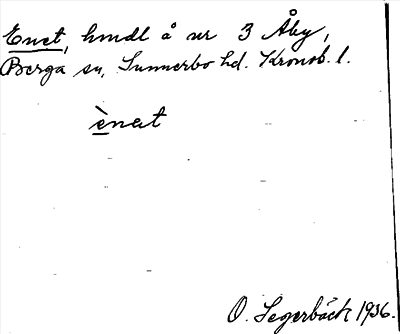 Enet, hmdl å nr 3 Åby,
Berga sn, Sunnerbo hd. Kronob. l.
ènet
O. Segerbäck 1936.